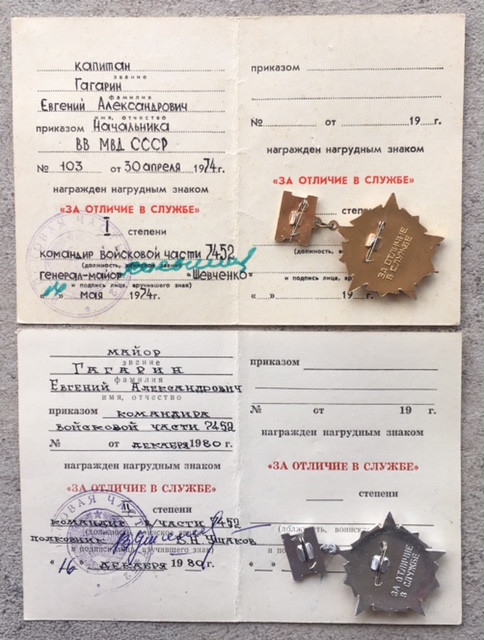 капитан
звание
Гагарин
фамилия
Евгений Александрович
имя, отчество
приказом Начальника
ВВ МВД СССР
№ 103 от 30 апреля 1974 г.
награжден нагрудным знаком
«ЗА ОТЛИЧИЕ В СЛУЖБЕ»
I
степени
командир войсковой части 7452
(должность,
генерал-майор "Шевченко"
и подпись лица, вручившего знак)
«16» мая 1974 г.
приказом
№ от 19 г.
награжден нагрудным знаком
«ЗА ОТЛИЧИЕ В СЛУЖБЕ»
степени
и подпись лица, вручившего знак)
« » 19
ЗА ОТЛИЧИЕ
В СЛУЖБЕ
майор
звание
Гагарин
фамилия
Евгений Александрович
имя, отчество
приказом командира
войсковой части 7459
№ от декабря 1980 г.
награжден нагрудным знаком
«ЗА ОТЛИЧИЕ В СЛУЖБЕ»
II
степени
командир в части 7452
полковник Ушаков
и подпись лица, вручившего знак)
«16» декабря 1980 г.
приказом
№ от 19 г.
награжден нагрудным знаком
«ЗА ОТЛИЧИЕ В СЛУЖБЕ»
степени
« »
ЗА ОТЛИЧИЕ
В СЛУЖБЕ